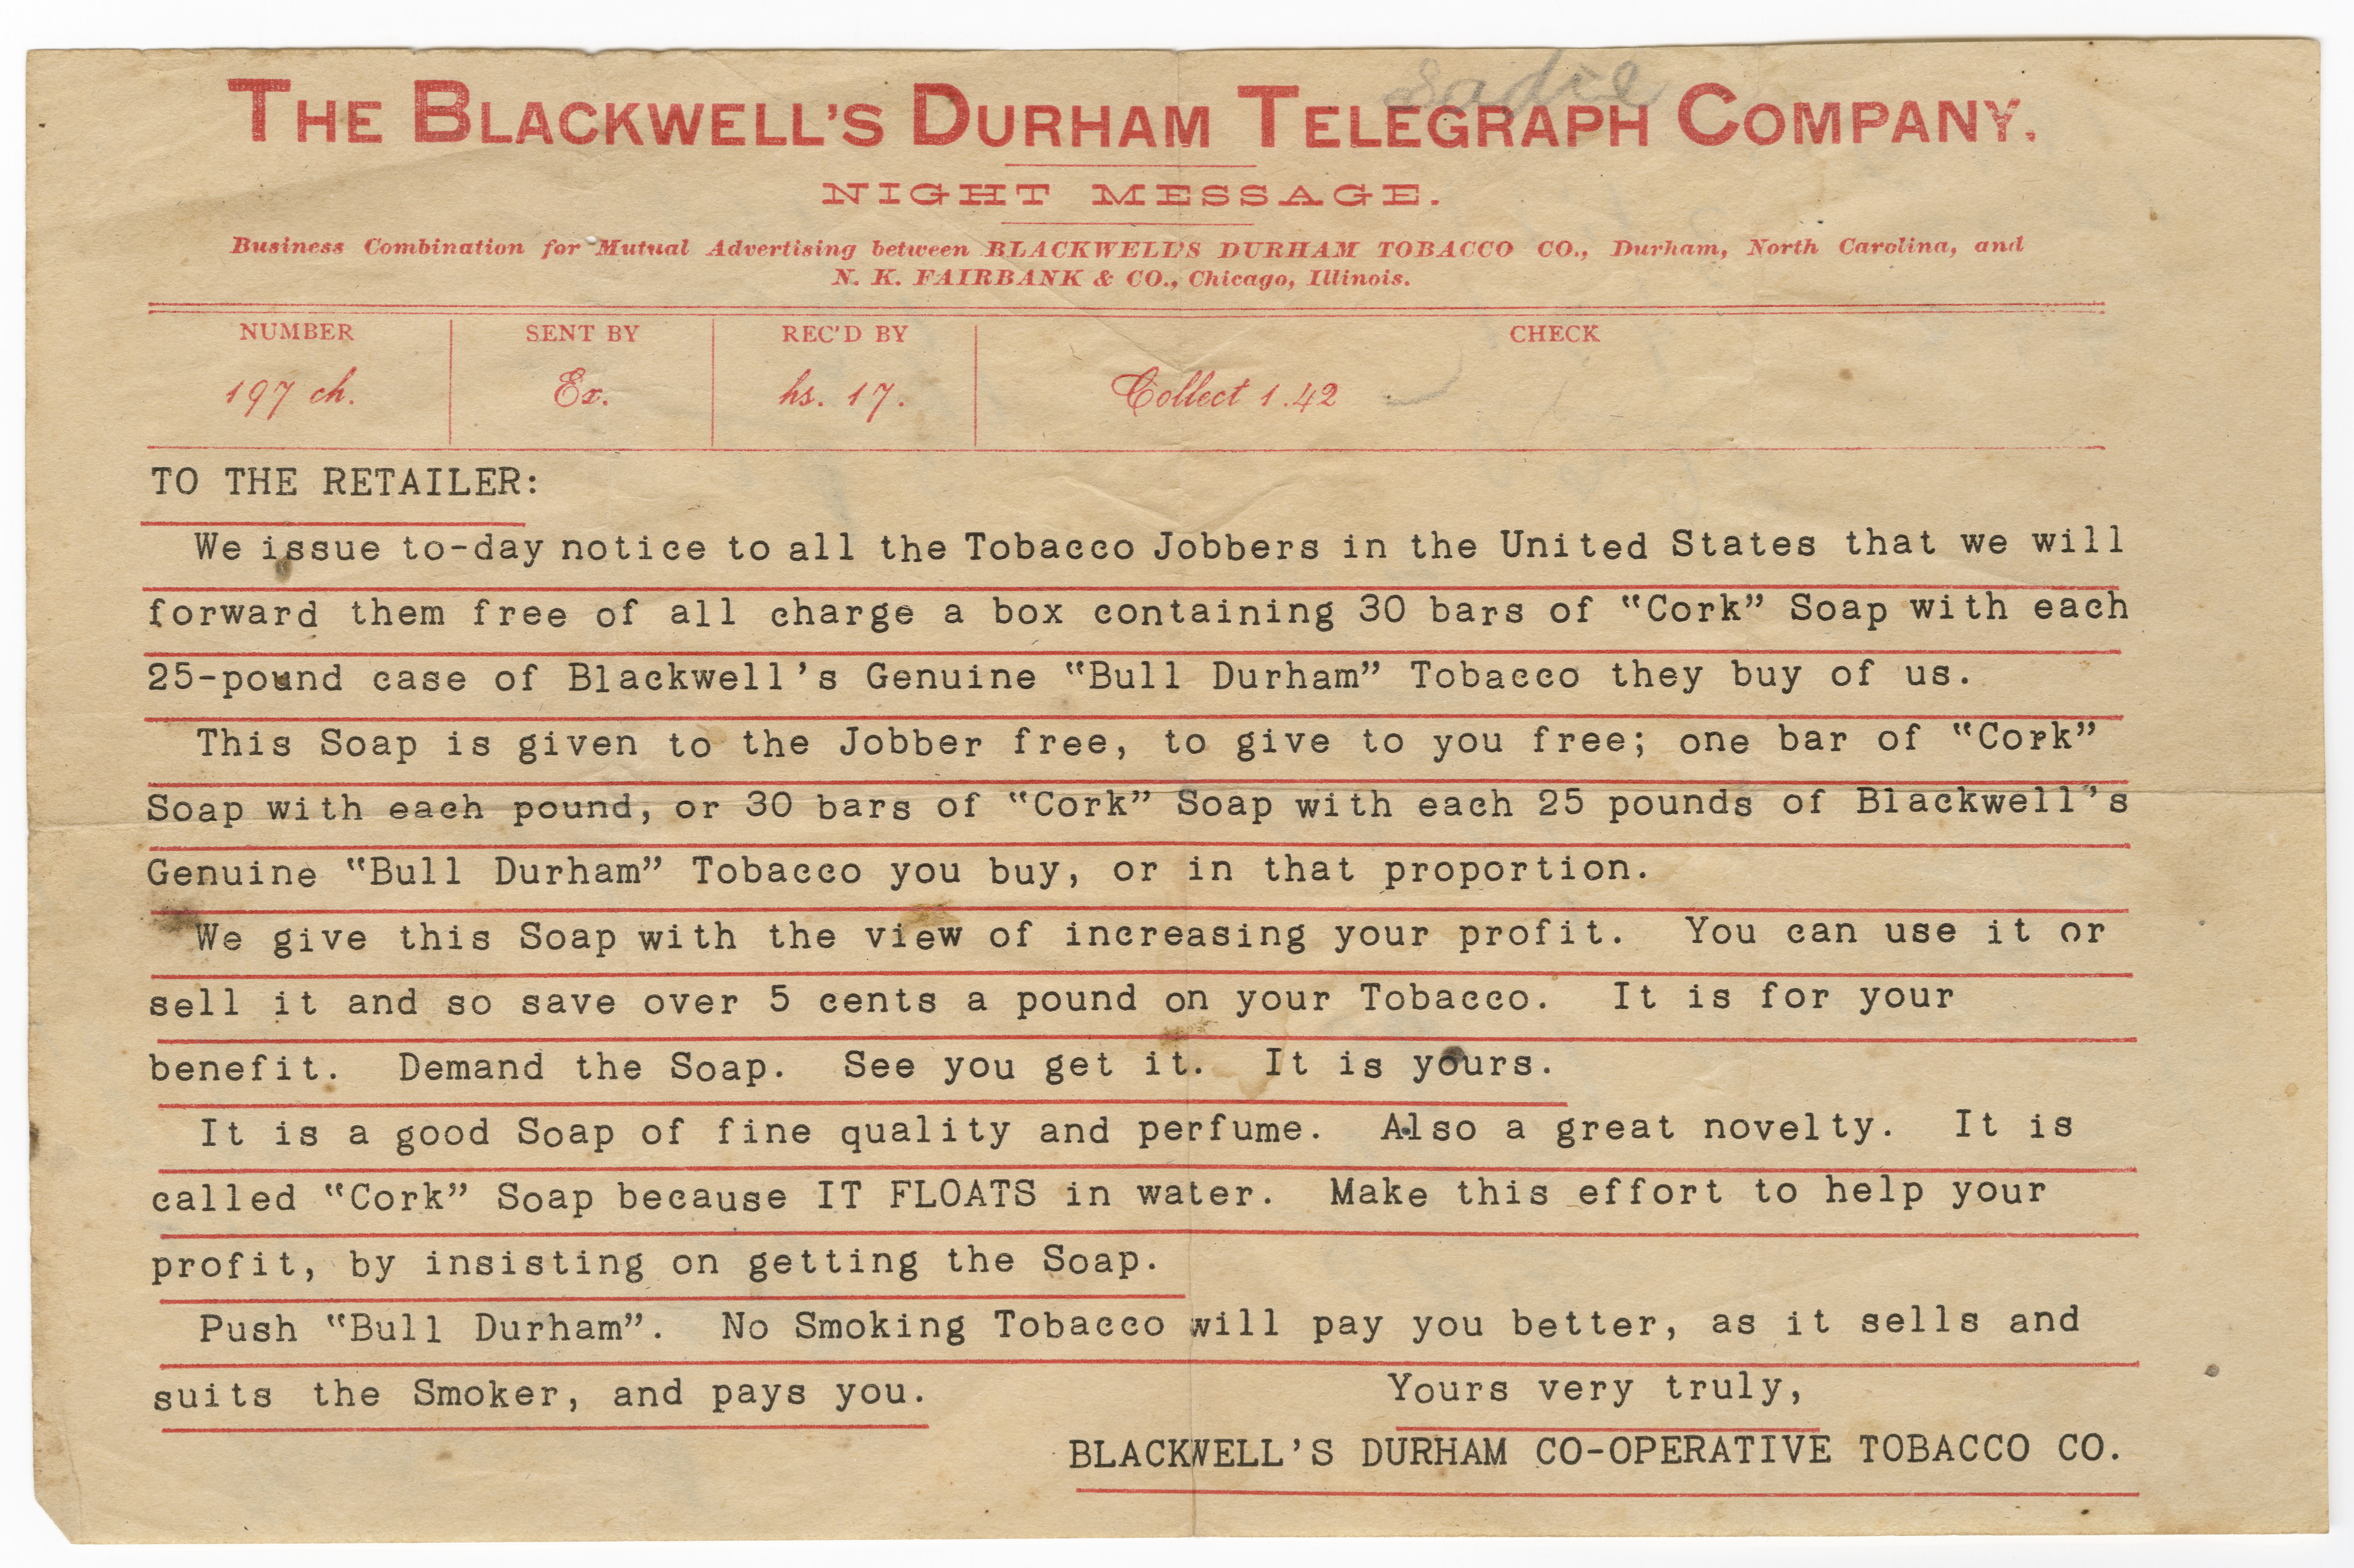 Sadie
THE BLACKWELL'S DURHAM TELEGRAPH COMPANY.
NIGHT MESSAGE.
Business Combination for Mutual Advertising between BLACKWELL'S DURHAM TOBACCO CO., Durham, North Carolina, and
N. K. FAIRBANK & CO., Chicago, Illinois.
NUMBER SENT BY REC'D BY CHECK
197 ch. Ex. hs. 17. Collect 1.42
TO THE RETAILER:
We issue to-day notice to all the Tobacco Jobbers in the United States that we will
forward them free of all charge a box containing 30 bars of "Cork" Soap with each
25-pound case of Blackwell's Genuine "Bull Durham" Tobacco they buy of us.
This Soap is given to the Jobber free, to give to you free; one bar of "Cork"
Soap with each pound, or 30 bars of "Cork" Soap with each 25 pounds of Blackwell's
Genuine "Bull Durham" Tobacco you buy, or in that proportion.
We give this Soap with the view of increasing your profit. You can use it or
sell it and so save over 5 cents a pound on your Tobacco. It is for your
benefit. Demand the Soap. See you get it. It is yours.
It is a good Soap of fine quality and perfume. Also a great novelty. It is
called "Cork" Soap because IT FLOATS in water. Make this effort to help your
profit, by insisting on getting the Soap.
Push "Bull Durham". No Smoking Tobacco will pay you better, as it sells and
suits the Smoker, and pays you. Yours very truly,
BLACKWELL'S DURHAM CO-OPERATIVE TOBACCO CO.